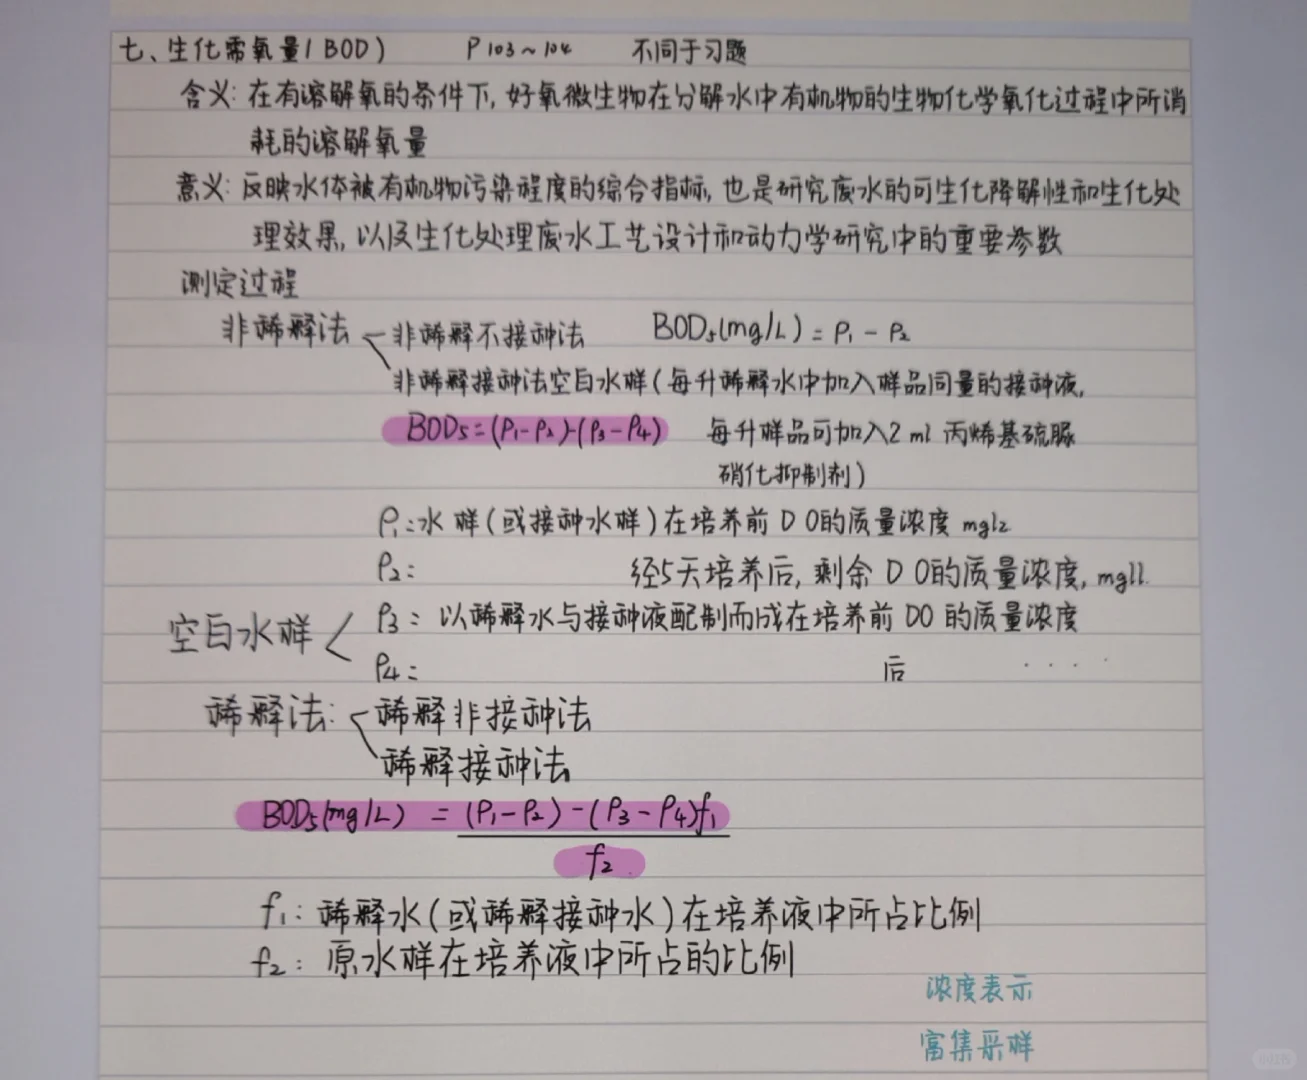 七、生化需氧量(BOD) P103~104 不同于习题
含义:在有溶解氧的条件下,好氧微生物在分解水中有机物的生物化学氧化过程中所消
耗的溶解氧量
意义:反映水体被有机物污染程度的综合指标,也是研究废水的可生化降解性和生化处
理效果,以及生化处理废水工艺设计和动力学研究中的重要参数
测定过程
非稀释法 非稀释不接种法 BOD₅(mg/L)=ρ₁-ρ₂
非稀释接种法空白水样(每升稀释水中加入样品同量的接种液,
BOD₅=(ρ₁-ρ₂)-(ρ₃-ρ₄) 每升样品可加入2ml 丙烯基硫脲
硝化抑制剂)
ρ₁:水样(或接种水样)在培养前DO的质量浓度 mg/L
ρ₂: 经5天培养后,剩余DO的质量浓度,mg/L
空白水样 ρ₃:以稀释水与接种液配制而成在培养前DO的质量浓度
ρ₄: 后 ....
稀释法: 稀释非接种法
稀释接种法
BOD₅(mg/L) = (ρ₁-ρ₂)-(ρ₃-ρ₄)f₁
f₂
f₁:稀释水(或稀释接种水)在培养液中所占比例
f₂:原水样在培养液中所占的比例
浓度表示
富集采样